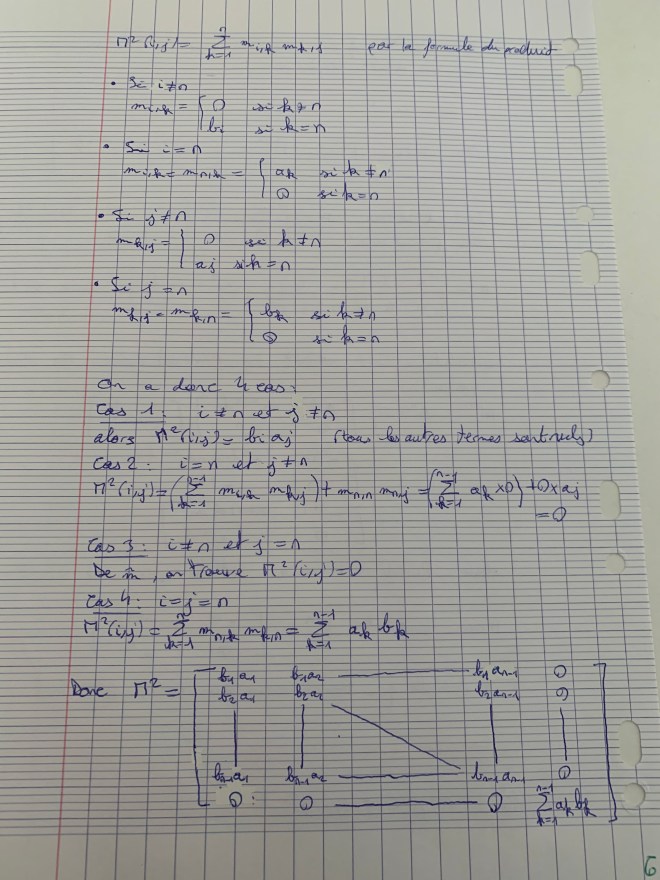 M²(i,j) = ∑_{k=1}^{n} m_{i,k} m_{k,j} par la formule du produit
• Si i≠n
m_{i,k} = { 0 si k≠n
bi si k=n
• Si i=n
m_{i,k} = m_{n,k} = { ak si k≠n
0 si k=n
• Si j≠n
m_{k,j} = { 0 si k≠n
aj si k=n
• Si j=n
m_{k,j} = m_{k,n} = { bk si k≠n
0 si k=n
On a donc 4 cas:
Cas 1: i≠n et j≠n
alors M²(i,j) = bi aj (tous les autres termes sont nuls)
Cas 2: i=n et j≠n
M²(i,j) = (∑_{k=1}^{n-1} m_{i,k} m_{k,j}) + m_{n,n} m_{n,j} = (∑_{k=1}^{n-1} ak×0) + 0×aj
=0
Cas 3: i≠n et j=n
De m̂, on trouve M²(i,j)=0
Cas 4: i=j=n
M²(i,j) = ∑_{k=1}^{n} m_{n,k} m_{k,n} = ∑_{k=1}^{n-1} ak bk
Donc M² = [ b1a1 b1a2 b1an-1 0
b2a1 b2a2 b2an-1 0
bn-1a1 bn-1a2 bn-1an-1 0
0 0 0 ∑_{k=1}^{n-1} ak bk ]
6